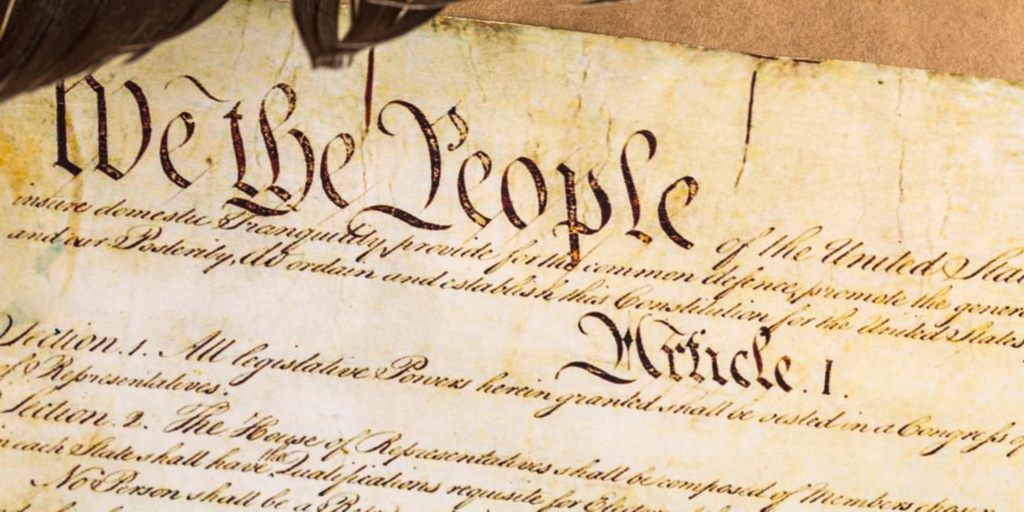 We the People of the United
insure domestic Tranquility, provide for the common defence, promote the
and our Posterity, do ordain and establish this Constitution for the United States
Article. I.
Section. 1. All legislative Powers herein granted shall be vested in a Congress of
of Representatives.
Section. 2. The House of Representatives shall be composed of Members chosen
in each State shall have the Qualifications requisite for
No Person shall be a